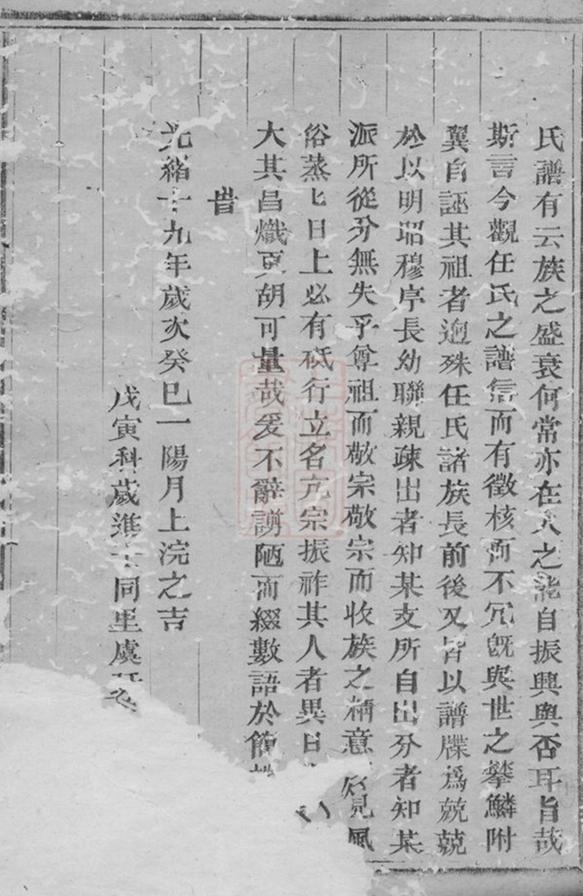 氏譜有云族之盛衰何常亦在人之能自振興與否耳旨哉
斯言今觀任氏之譜信而有徵核而不冗旣與世之攀鱗附
翼自誣其祖者逈殊任氏諸族長前後又皆以譜牒爲兢兢
於以明昭穆序長幼聯親疎出者知某支所自出分者知某
派所從分無失乎尊祖而敬宗敬宗而收族之精意 見風
俗蒸七日上必有砥行立名亢宗振祚其人者異日
大其昌熾更胡可量哉爰不辭謭陋而綴數語於簡
旹
光緒十九年歲次癸巳一陽月上浣之吉
戊寅科歲進士同里虞